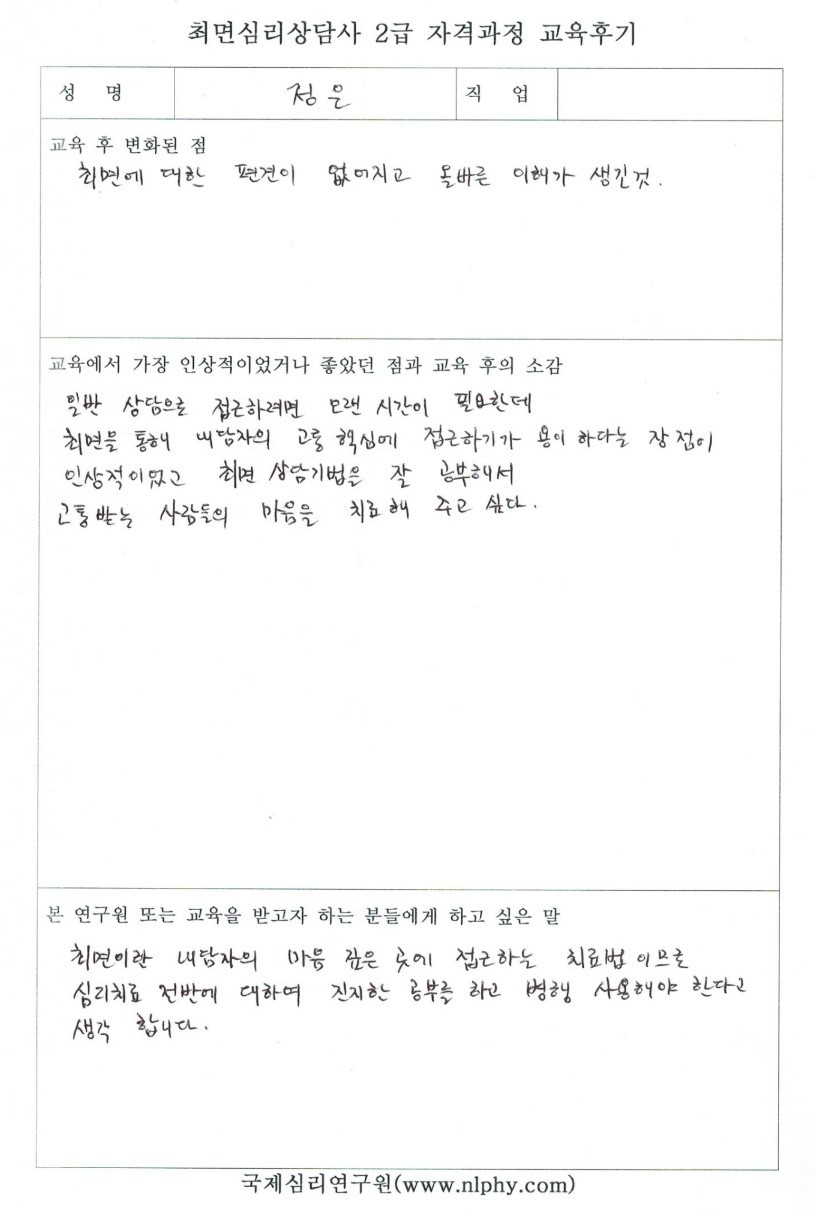 최면심리상담사 2급 자격과정 교육후기
성 명 정은 직 업
교육 후 변화된 점
최면에 대한 편견이 없어지고 올바른 이해가 생긴것.
교육에서 가장 인상적이었거나 좋았던 점과 교육 후의 소감
일반 상담으로 접근하려면 오랜 시간이 필요한데
최면을 통해 내담자의 고통 핵심에 접근하기가 용이 하다는 장점이
인상적이었고 최면 상담기법을 잘 공부해서
고통받는 사람들의 마음을 치료해 주고 싶다.
본 연구원 또는 교육을 받고자 하는 분들에게 하고 싶은 말
최면이란 내담자의 마음 깊은 곳에 접근하는 치료법이므로
심리치료 전반에 대하여 진지한 공부를 하고 병행 사용해야 한다고
생각 합니다.
국제심리연구원(www.nlphy.com)